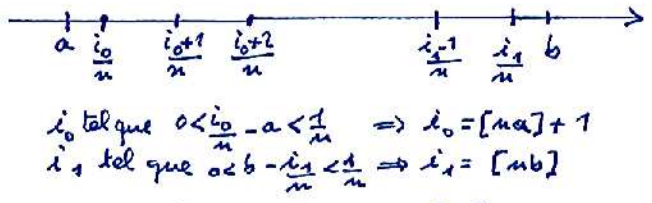 a i₀/n i₀+1/n i₀+2/n i₁-1/n i₁/n b
i₀ tel que 0 < i₀/n - a < 1/n ⇒ i₀ = [na] + 1
i₁ tel que 0 < b - i₁/n < 1/n ⇒ i₁ = [nb]